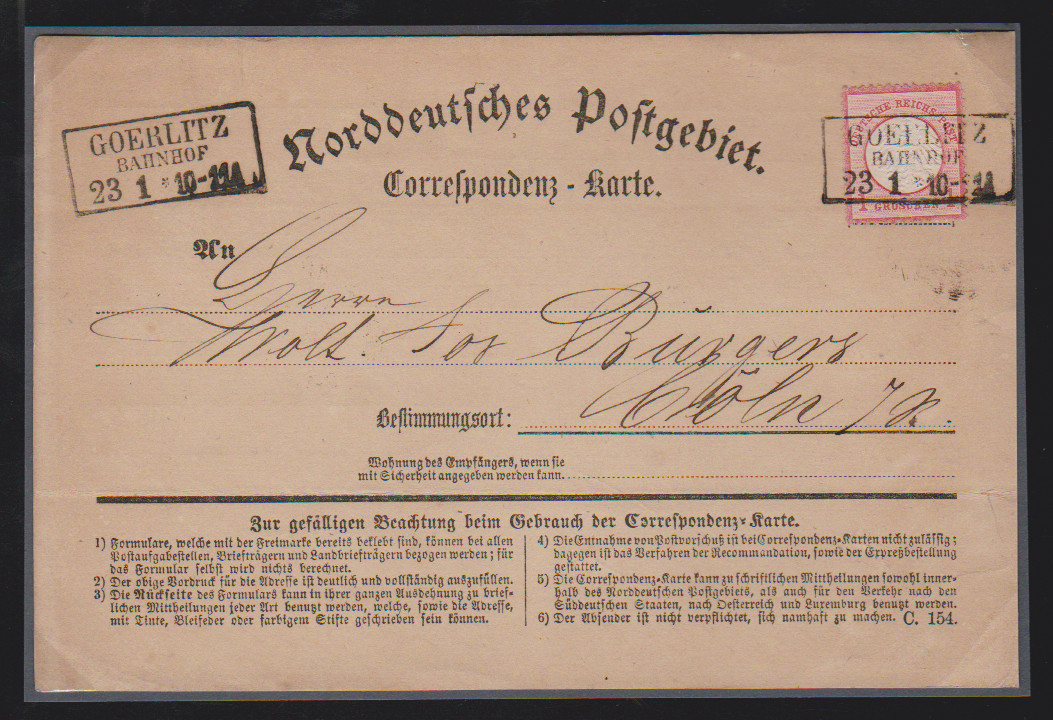 Norddeutsches Postgebiet.
Correspondenz-Karte.
GOERLITZ
BAHNHOF
23 1 * 10-11A
DEUTSCHE REICHS-POST
1 GROSCHEN 1
GOERLITZ
BAHNHOF
23 1 * 10-11A
An
Herrn
Jos Bürgers
Bestimmungsort: Cöln
Wohnung des Empfängers, wenn sie
mit Sicherheit angegeben werden kann.
Zur gefälligen Beachtung beim Gebrauch der Correspondenz-Karte.
1) Formulare, welche mit der Freimarke bereits beklebt sind, können bei allen
Postaufgabestellen, Briefträgern und Landbriefträgern bezogen werden; für
das Formular selbst wird nichts berechnet.
2) Der obige Vordruck für die Adresse ist deutlich und vollständig auszufüllen.
3) Die Rückseite des Formulars kann in ihrer ganzen Ausdehnung zu brief-
lichen Mittheilungen jeder Art benutzt werden, welche, sowie die Adresse,
mit Tinte, Bleifeder oder farbigem Stifte geschrieben sein können.
4) Die Entnahme von Postvorschuß ist bei Correspondenz-Karten nicht zulässig;
dagegen ist das Verfahren der Recommandation, sowie der Expreßbestellung
gestattet.
5) Die Correspondenz-Karte kann zu schriftlichen Mittheilungen sowohl inner-
halb des Norddeutschen Postgebiets, als auch für den Verkehr nach den
Süddeutschen Staaten, nach Oesterreich und Luxemburg benutzt werden.
6) Der Absender ist nicht verpflichtet, sich namhaft zu machen. C. 154.